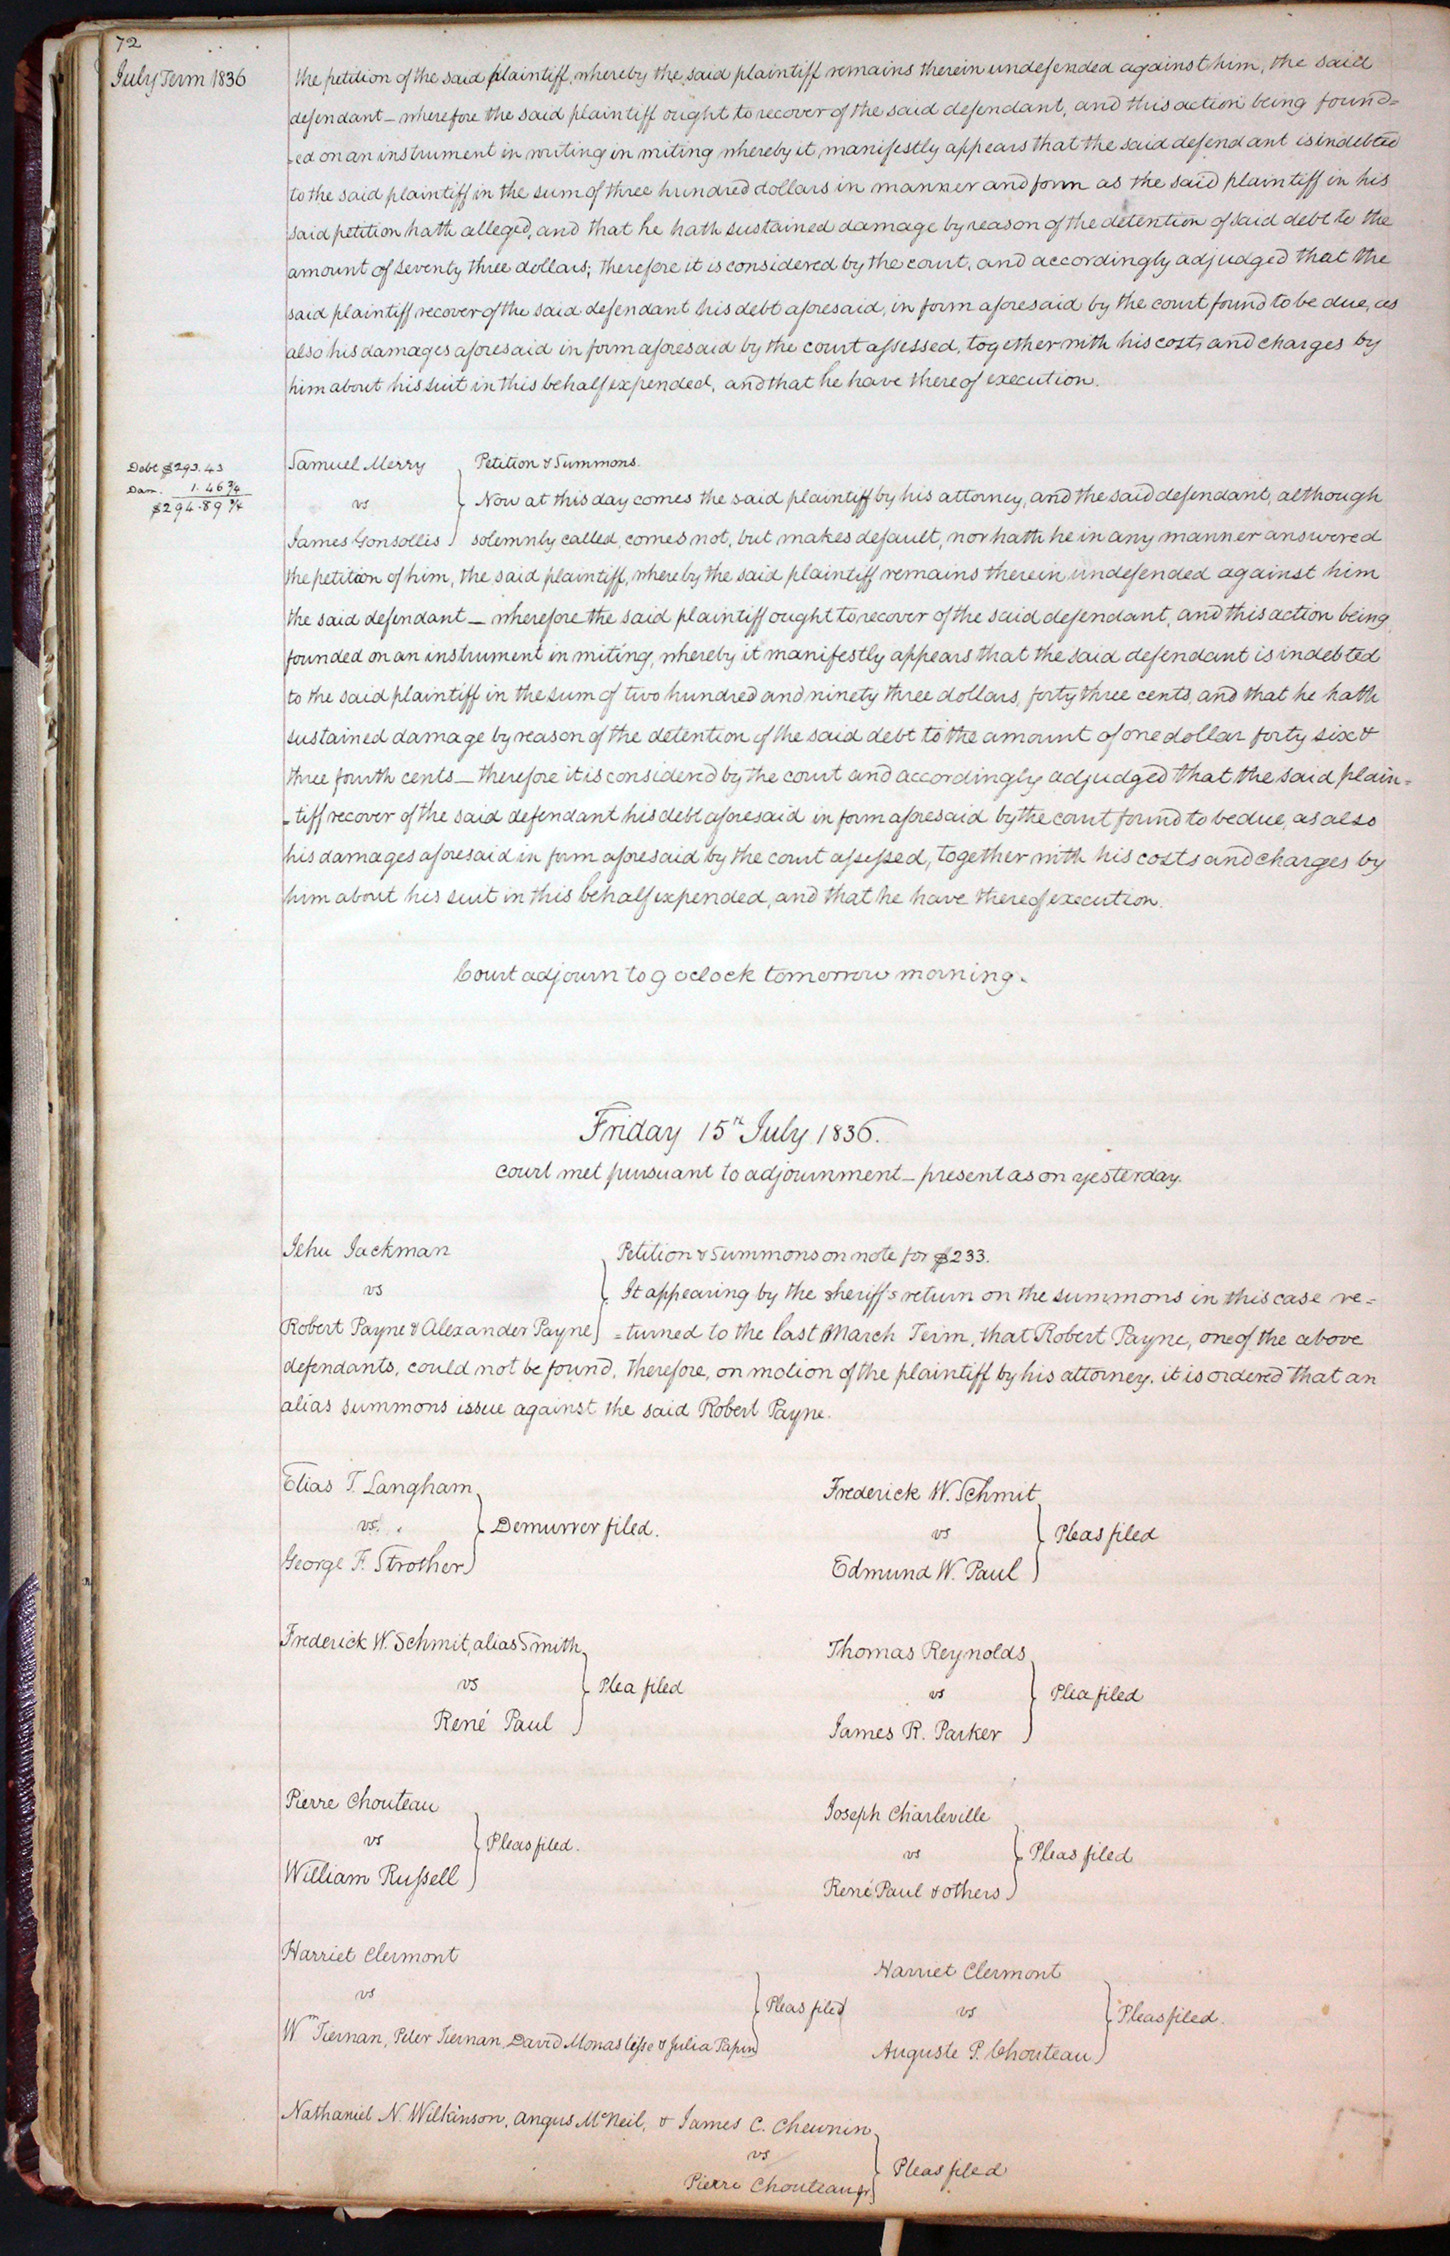 72
July Term 1836
the petition of the said plaintiff, whereby the said plaintiff remains therein undefended against him, the said
defendant – wherefore the said plaintiff ought to recover of the said defendant, and this action being found=
-ed on an instrument in writing in writing whereby it manifestly appears that the said defendant is indebted
to the said plaintiff in the sum of three hundred dollars in manner and form as the said plaintiff in his
said petition hath alleged, and that he hath sustained damage by reason of the detention of said debt to the
amount of seventy three dollars; therefore it is considered by the court, and accordingly adjudged that the
said plaintiff recover of the said defendant his debt aforesaid, in form aforesaid by the court found to be due, as
also his damages aforesaid in form aforesaid by the court assessed, together with his costs and charges by
him about his suit in this behalf expended, and that he have thereof execution.
Debt $293.43
Dam. 1.46 3/4
$294.89 3/4
Samuel Merry
vs
James Gonsollis
Petition & Summons.
Now at this day comes the said plaintiff by his attorney, and the said defendant, although
solemnly called, comes not, but makes default, nor hath he in any manner answered
the petition of him, the said plaintiff, whereby the said plaintiff remains therein undefended against him
the said defendant – wherefore the said plaintiff ought to recover of the said defendant, and this action being
founded on an instrument in writing, whereby it manifestly appears that the said defendant is indebted
to the said plaintiff in the sum of two hundred and ninety three dollars, forty three cents, and that he hath
sustained damage by reason of the detention of the said debt to the amount of one dollar forty six &
three fourth cents – therefore it is considered by the court and accordingly adjudged that the said plain=
-tiff recover of the said defendant his debt aforesaid in form aforesaid by the court found to be due, as also
his damages aforesaid in form aforesaid by the court assessed, together with his costs and charges by
him about his suit in this behalf expended, and that he have thereof execution.
Court adjourn to 9 oclock tomorrow morning.
Friday 15th July 1836.
court met pursuant to adjournment – present as on yesterday.
Jehu Jackman
vs
Robert Payne & Alexander Payne
Petition & Summons on note for $233.
It appearing by the sheriff's return on the summons in this case re=
=turned to the last March Term, that Robert Payne, one of the above
defendants, could not be found, therefore, on motion of the plaintiff by his attorney, it is ordered that an
alias summons issue against the said Robert Payne.
Elias T. Langham
vs.
George F. Strother
Demurrer filed.
Frederick W. Schmit
vs
Edmund W. Paul
Pleas filed
Frederick W. Schmit, alias Smith
vs
René Paul
Plea filed
Thomas Reynolds
vs
James R. Parker
Plea filed
Pierre Chouteau
vs
William Russell
Pleas filed.
Joseph Charleville
vs
René Paul & others
Pleas filed
Harriet Clermont
vs
Wm Tiernan, Peter Tiernan, David Monastesse & Julia Papin
Pleas filed
Harriet Clermont
vs
Auguste P. Chouteau
Pleas filed.
Nathaniel N. Wilkinson, Angus McNeil, & James C. Chewnin
vs
Pierre Chouteau jr
Pleas filed